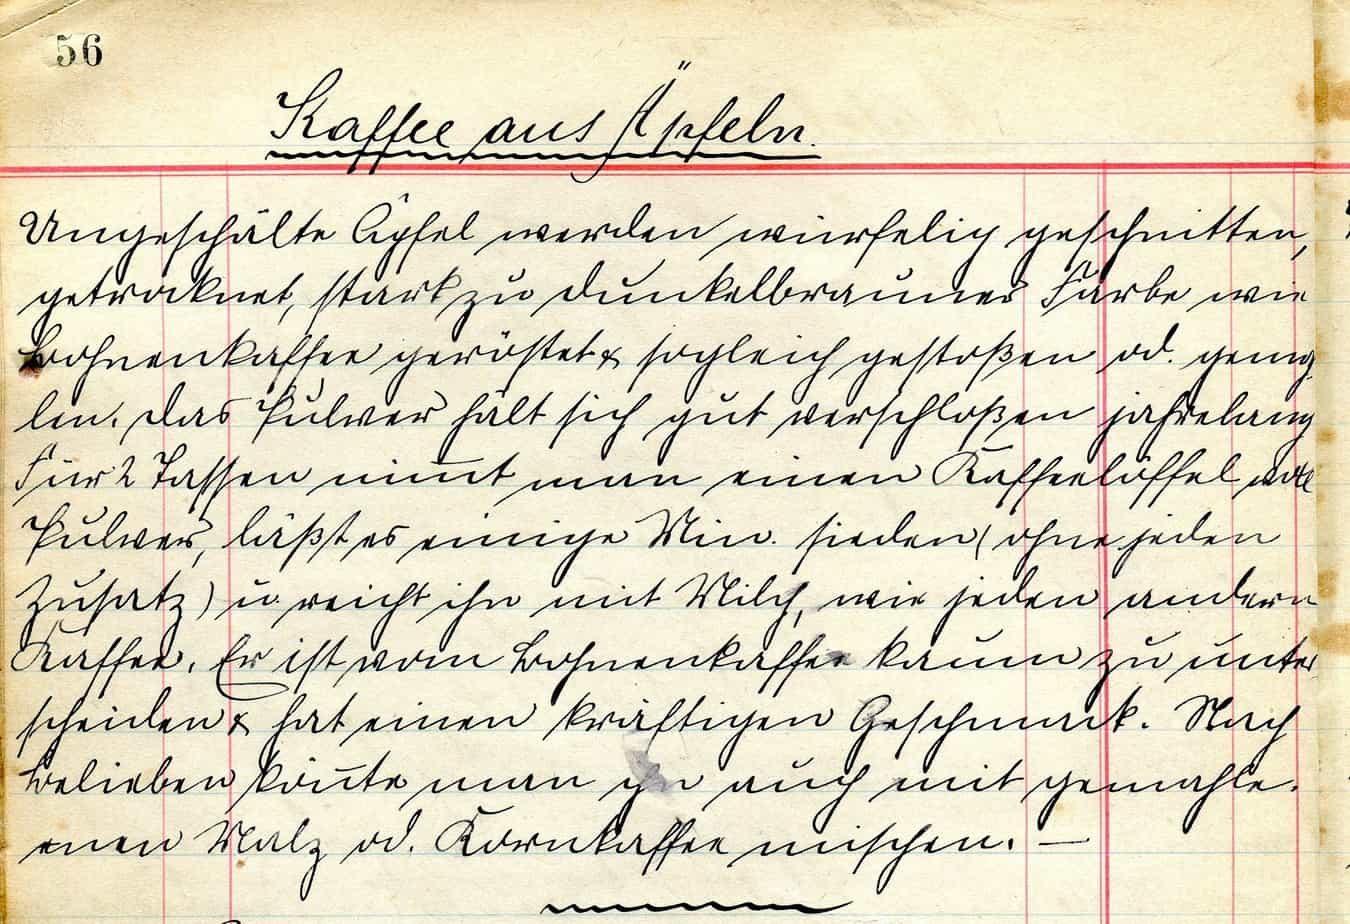 56
Kaffee aus Äpfeln.
Ungeschälte Äpfel werden würfelig geschnitten,
getrocknet, stark zu dunkelbrauner Farbe wie
Bohnenkaffee geröstet & sogleich gestoßen od. gemah
len. Das Pulver hält sich gut verschloßen jahrelang
Für 2 Tassen nim̅t man einen Kaffeelöffel voll
Pulver, läßt es einige Min. sieden (ohne jeden
Zusatz) u. reicht ihn mit Milch, wie jeden andern
Kaffee. Er ist vom Bohnenkaffee kaum zu unter
scheiden & hat einen kräftigen Geschmack. Nach
Belieben kön̅te man ihn auch mit gemahle-
nen Malz od. Kornkaffee mischen. —